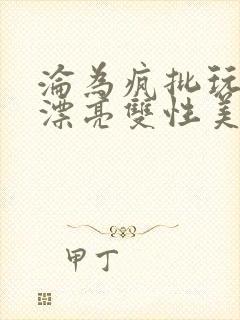 淪為瘋批玩
漂亮雙性美
甲丁